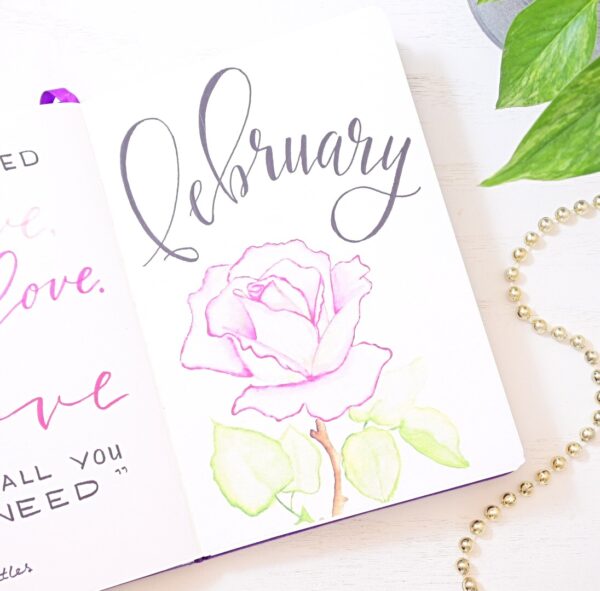 ED
love.
ove
ALL YOU
NEED "
tles
February